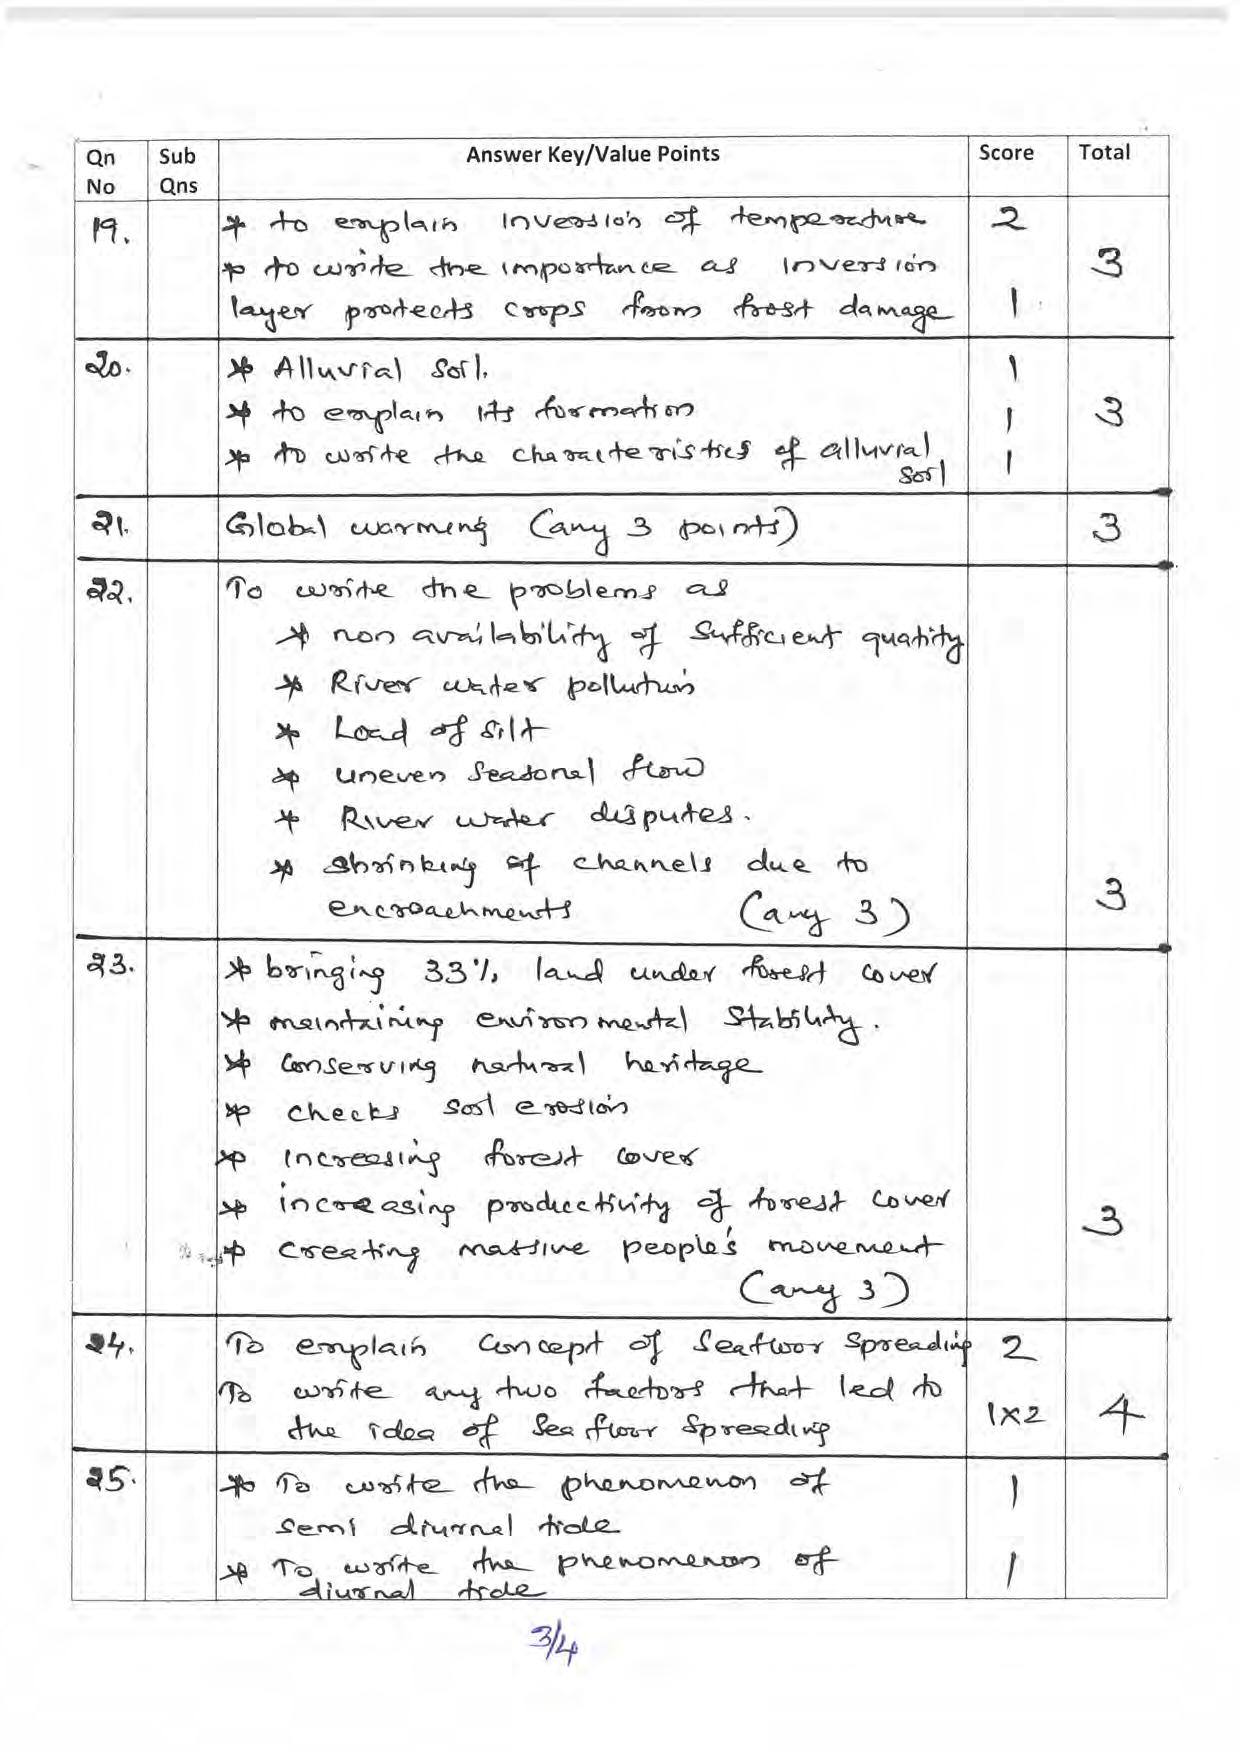 Qn No Sub Qns Answer Key/Value Points Score Total
19. * to explain inversion of temperature 2
* to write the importance as inversion 3
layer protects crops from frost damage 1
20. * Alluvial soil. 1
* to explain its formation 1 3
* to write the characteristics of alluvial soil 1
21. Global warming (any 3 points) 3
22. To write the problems as
* non availability of sufficient quatity
* River water pollution
* Load of silt
* uneven seasonal flow
* River water disputes.
* shrinking of channels due to
encroachments (any 3) 3
23. * bringing 33% land under forest cover
* maintaining environmental stability.
* conserving natural heritage
* checks soil erosion
* increasing forest cover
* increasing productivity of forest cover
* creating massive people's movement 3
(any 3)
24. To explain concept of seafloor spreading 2
To write any two factors that led to
the idea of sea floor spreading 1x2 4
25. * To write the phenomenon of 1
semi diurnal tide
* To write the phenomenon of 1
diurnal tide
3/4